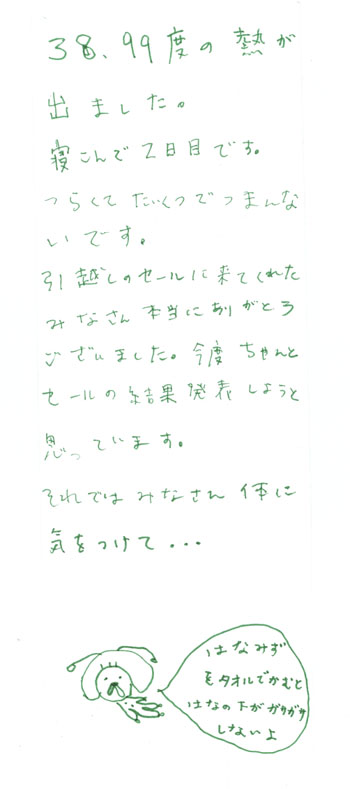 38.99度の熱が
出ました。
寝こんで2日目です。
つらくてたいくつでつまんな
いです。
引越しのセールに来てくれた
みなさん本当にありがとう
ございました。今度ちゃんと
セールの結果発表しようと
思っています。
それではみなさん体に
気をつけて...
はなみず
毛タオルでかむと
はなの下がガサガサ
しないよ